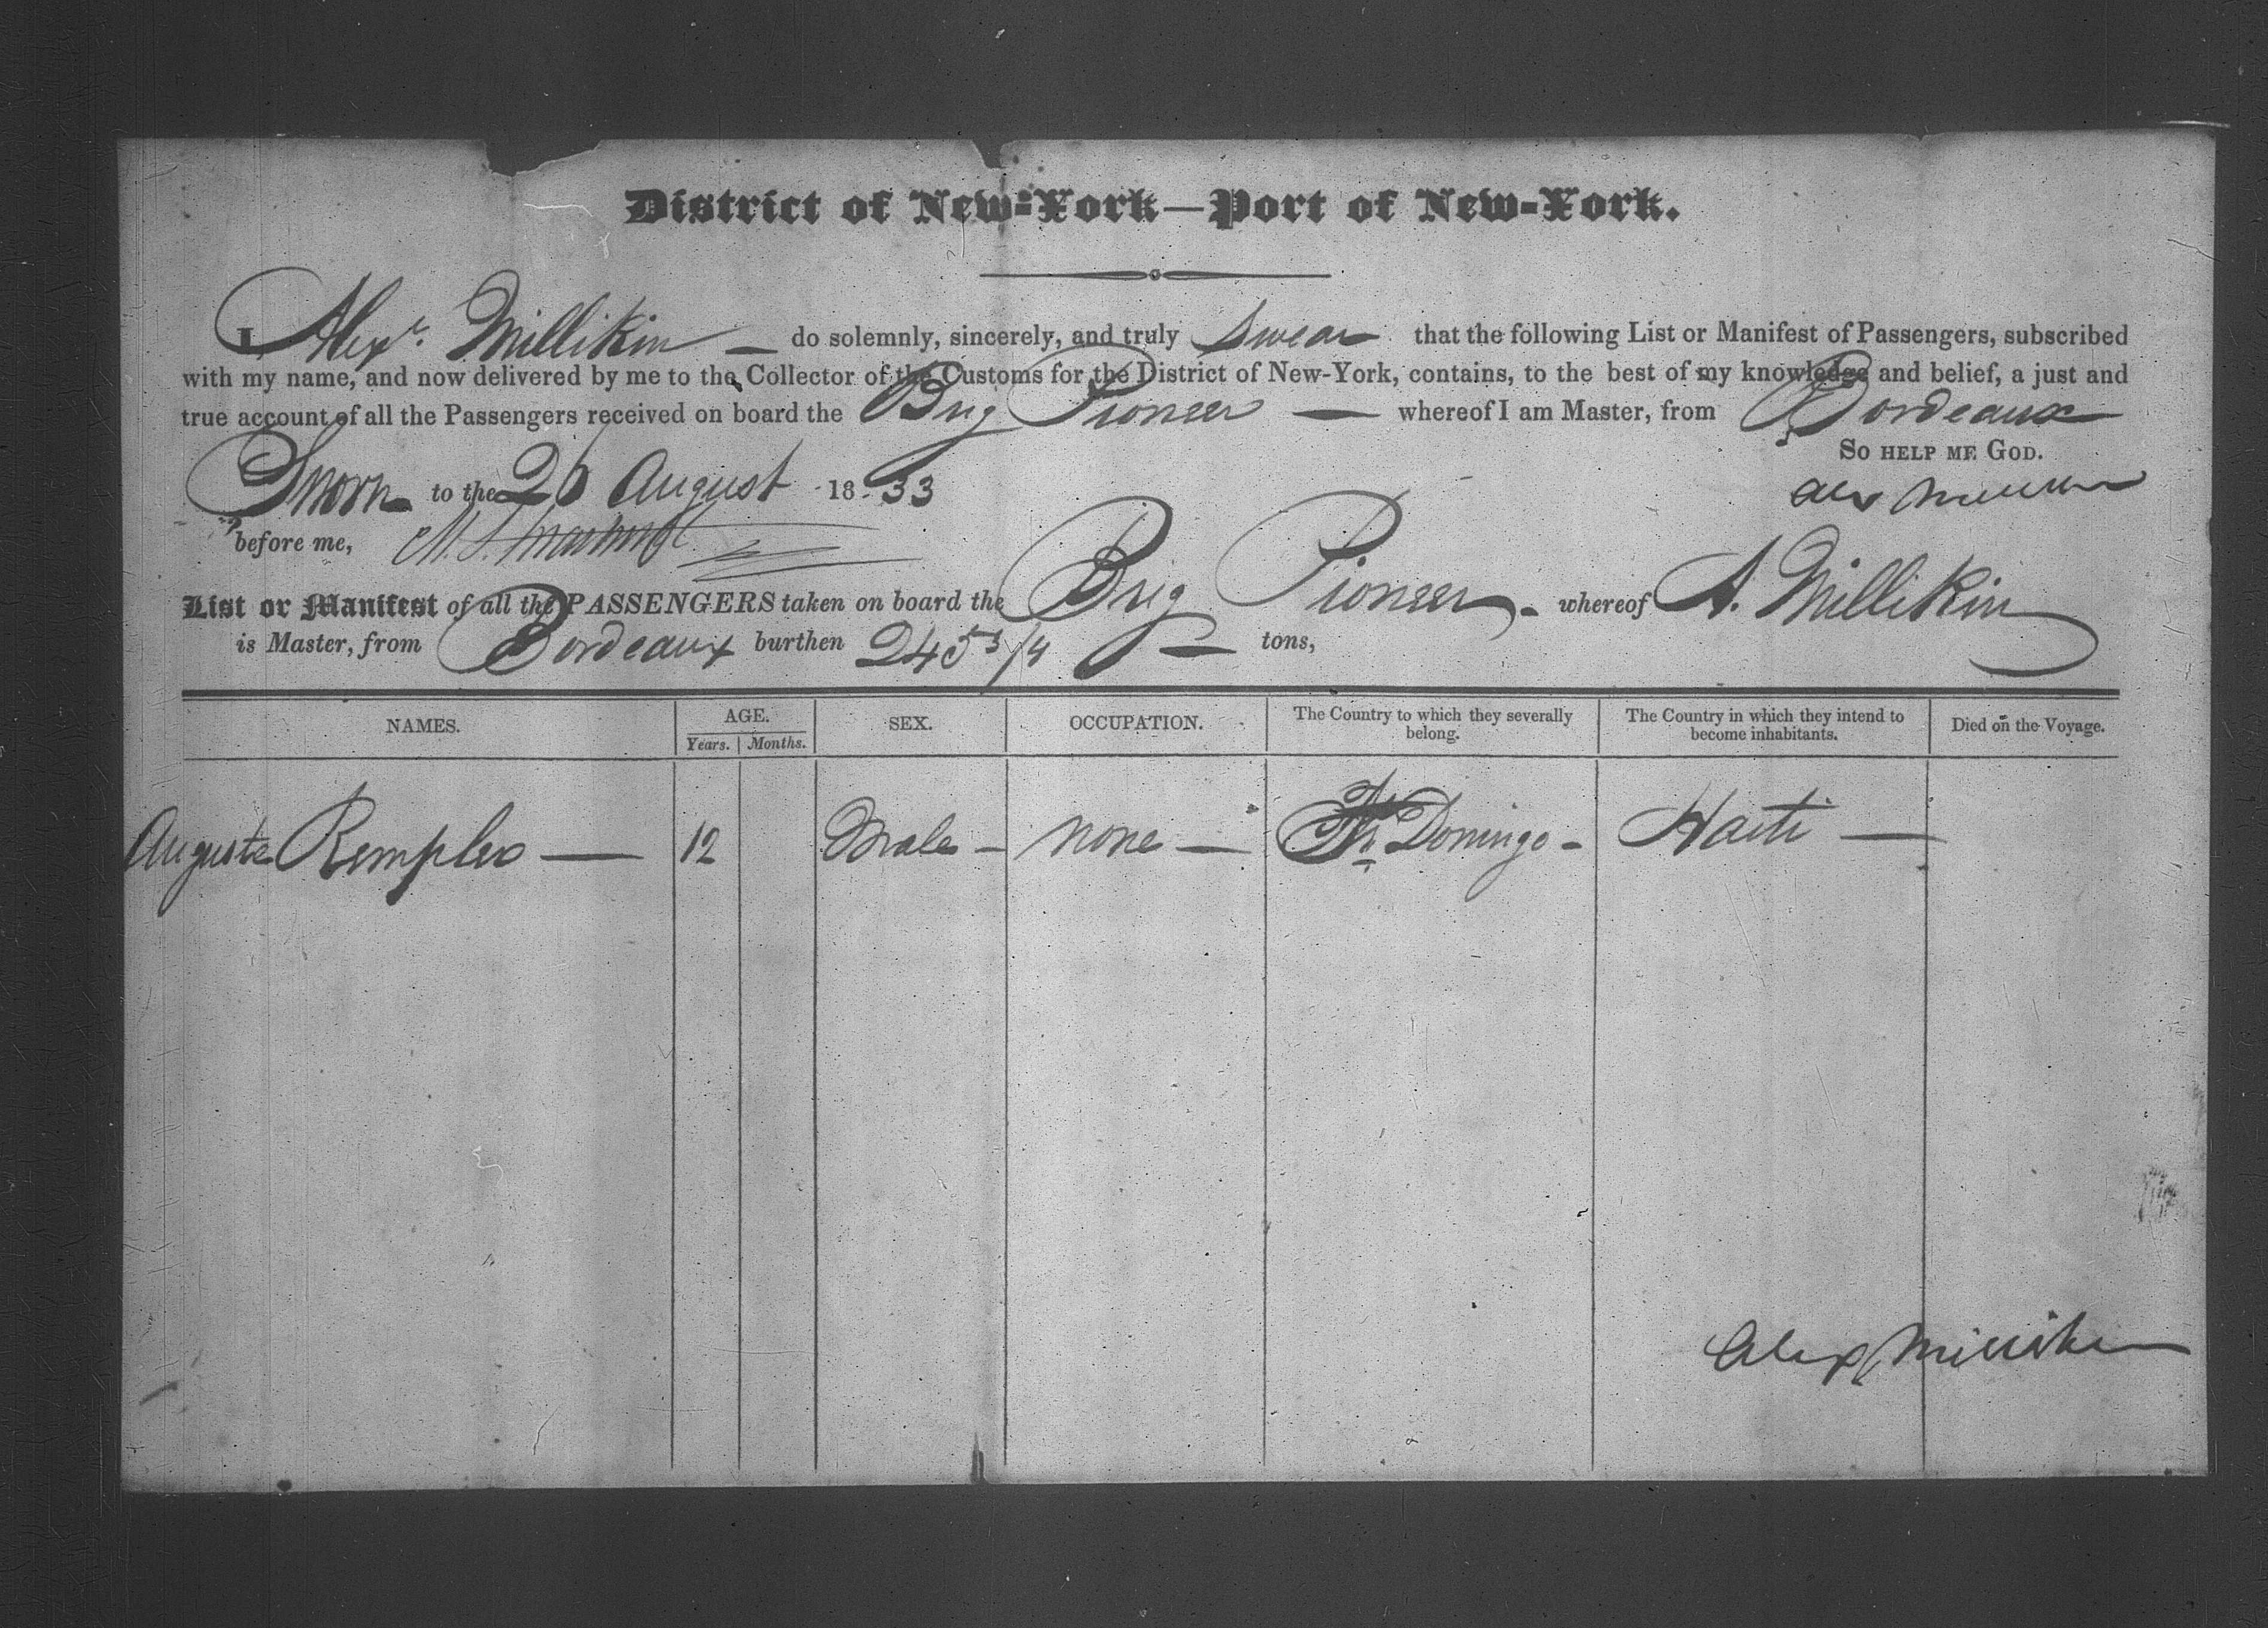 District of New-York—Port of New-York.
I, Alexr. Millikin — do solemnly, sincerely, and truly swear that the following List or Manifest of Passengers, subscribed
with my name, and now delivered by me to the Collector of the Customs for the District of New-York, contains, to the best of my knowledge and belief, a just and
true account of all the Passengers received on board the Brig Pioneer — whereof I am Master, from Bordeaux
So help me God.
Sworn to the 26 August 1833
Alex Millikin
before me,
List or Manifest of all the PASSENGERS taken on board the Brig Pioneer - whereof A. Millikin
is Master, from Bordeaux burthen 245 3/4 — tons,
NAMES. AGE. SEX. OCCUPATION. The Country to which they severally belong. The Country in which they intend to become inhabitants. Died on the Voyage.
Years. Months.
Auguste Rempler — 12 Male - none — St Domingo - Haiti —
Alex Milliken